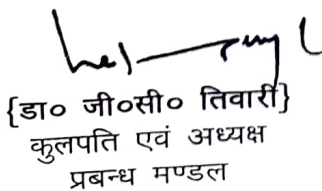 {डा० जी०सी० तिवारी}
कुलपति एवं अध्यक्ष
प्रबन्ध मण्डल